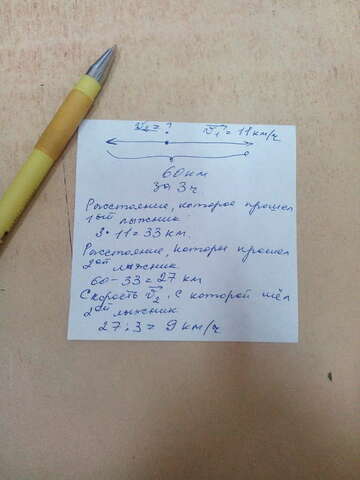 v₂ = ? v₁ = 11 км/ч
60 км
за 3 ч
Расстояние, которое прошел
1ый лыжник:
3 · 11 = 33 км.
Расстояние, которе прошел
2ой лыжник
60 - 33 = 27 км
Скорость v₂, с которой шёл
2ой лыжник
27 : 3 = 9 км/ч